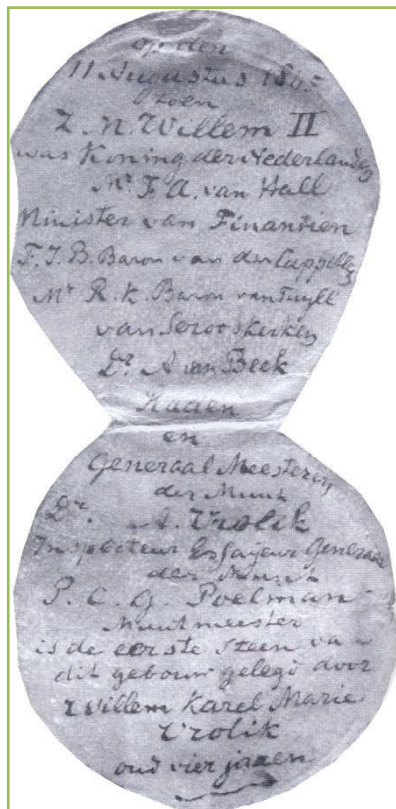 op den
11 Augustus 1845
toen
Z. M. Willem II
was Koning der Nederlanden
Mr. F. A. van Hall
Minister van Finantien
F. J. B. Baron van der Cappellen
Mr R. K. Baron van Tuyll
van Serooskerken
Dr. A van Beek
Raden
en
Generaal Meesteren
der Munt
Dr. A. Vrolik
Inspecteur Essayeur Generaal
der Munt
P. C. G. Poelman
Muntmeester
is de eerste steen van
dit gebouw gelegd door
Willem Karel Marie
Vrolik
oud vier jaren